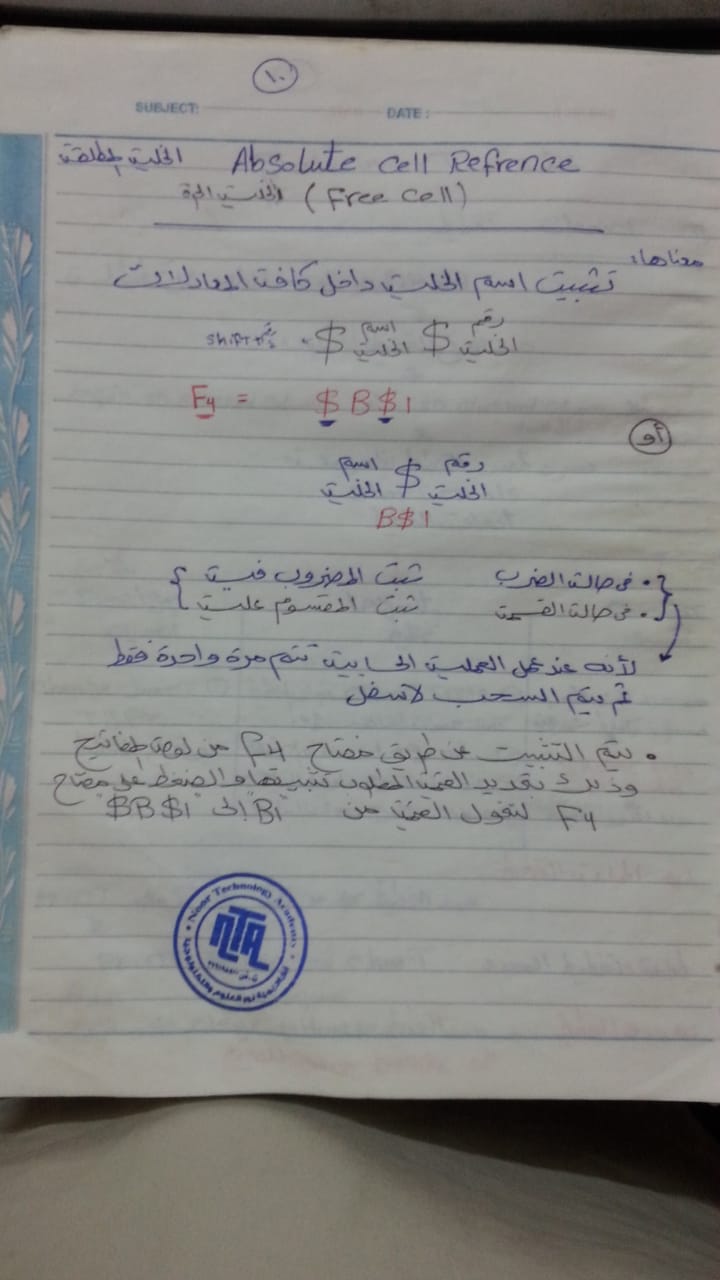 ١٠
SUBJECT: DATE:
Absolute Cell Refrence الخلية المطلقة
(Free Cell) الخلية الحرة
معناها:
تثبيت اسم الخلية داخل كافة المعادلات
رقم الخلية $ اسم الخلية $ Shift+٤
F4 = $B$1
أو
رقم الخلية $ اسم الخلية
B$1
• فى حالة الضرب ثبت المضروب فيه
• فى حالة القسمة ثبت المقسوم عليه
لأنه عند عمل العملية الحسابية تتم مرة واحدة فقط
ثم يتم السحب لأسفل
• يتم التثبيت عن طريق مفتاح F4 من لوحة المفاتيح
وذلك بتحديد القيمة المطلوب تثبيتها والضغط على مفتاح
F4 لتحول القيمة من B1 إلى $B$1
Noor Technology Academy
NTA
اكاديمية نور للعلوم والتكنولوجيا